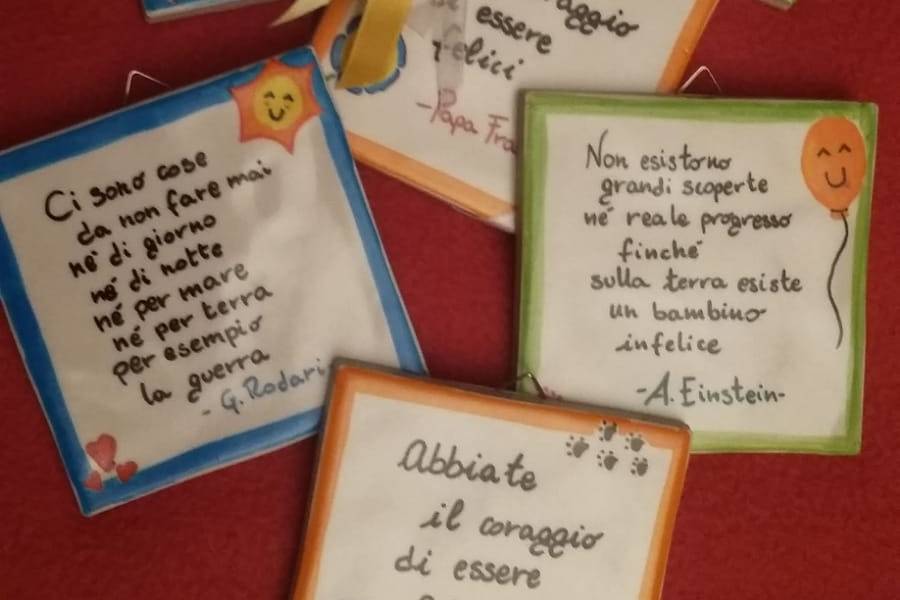 coraggio
essere
felici
-Papa
Ci sono cose
da non fare mai
né di giorno
né di notte
né per mare
né per terra
per esempio
la guerra
- G. Rodari
Non esistono
grandi scoperte
né reale progresso
finché
sulla terra esiste
un bambino
infelice
-A. Einstein-
Abbiate
il coraggio
di essere